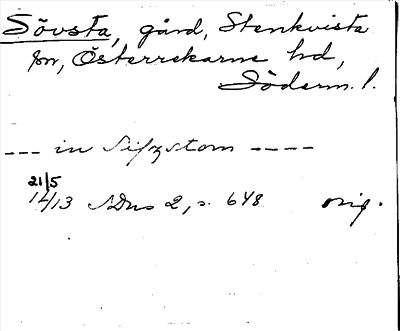 Sövsta, gård, Stenkvista
sn, Österrekarne hd,
Söderm. l.
--- in Sifzstom ----
21/5
1413 SDns 2, s. 648 orig.